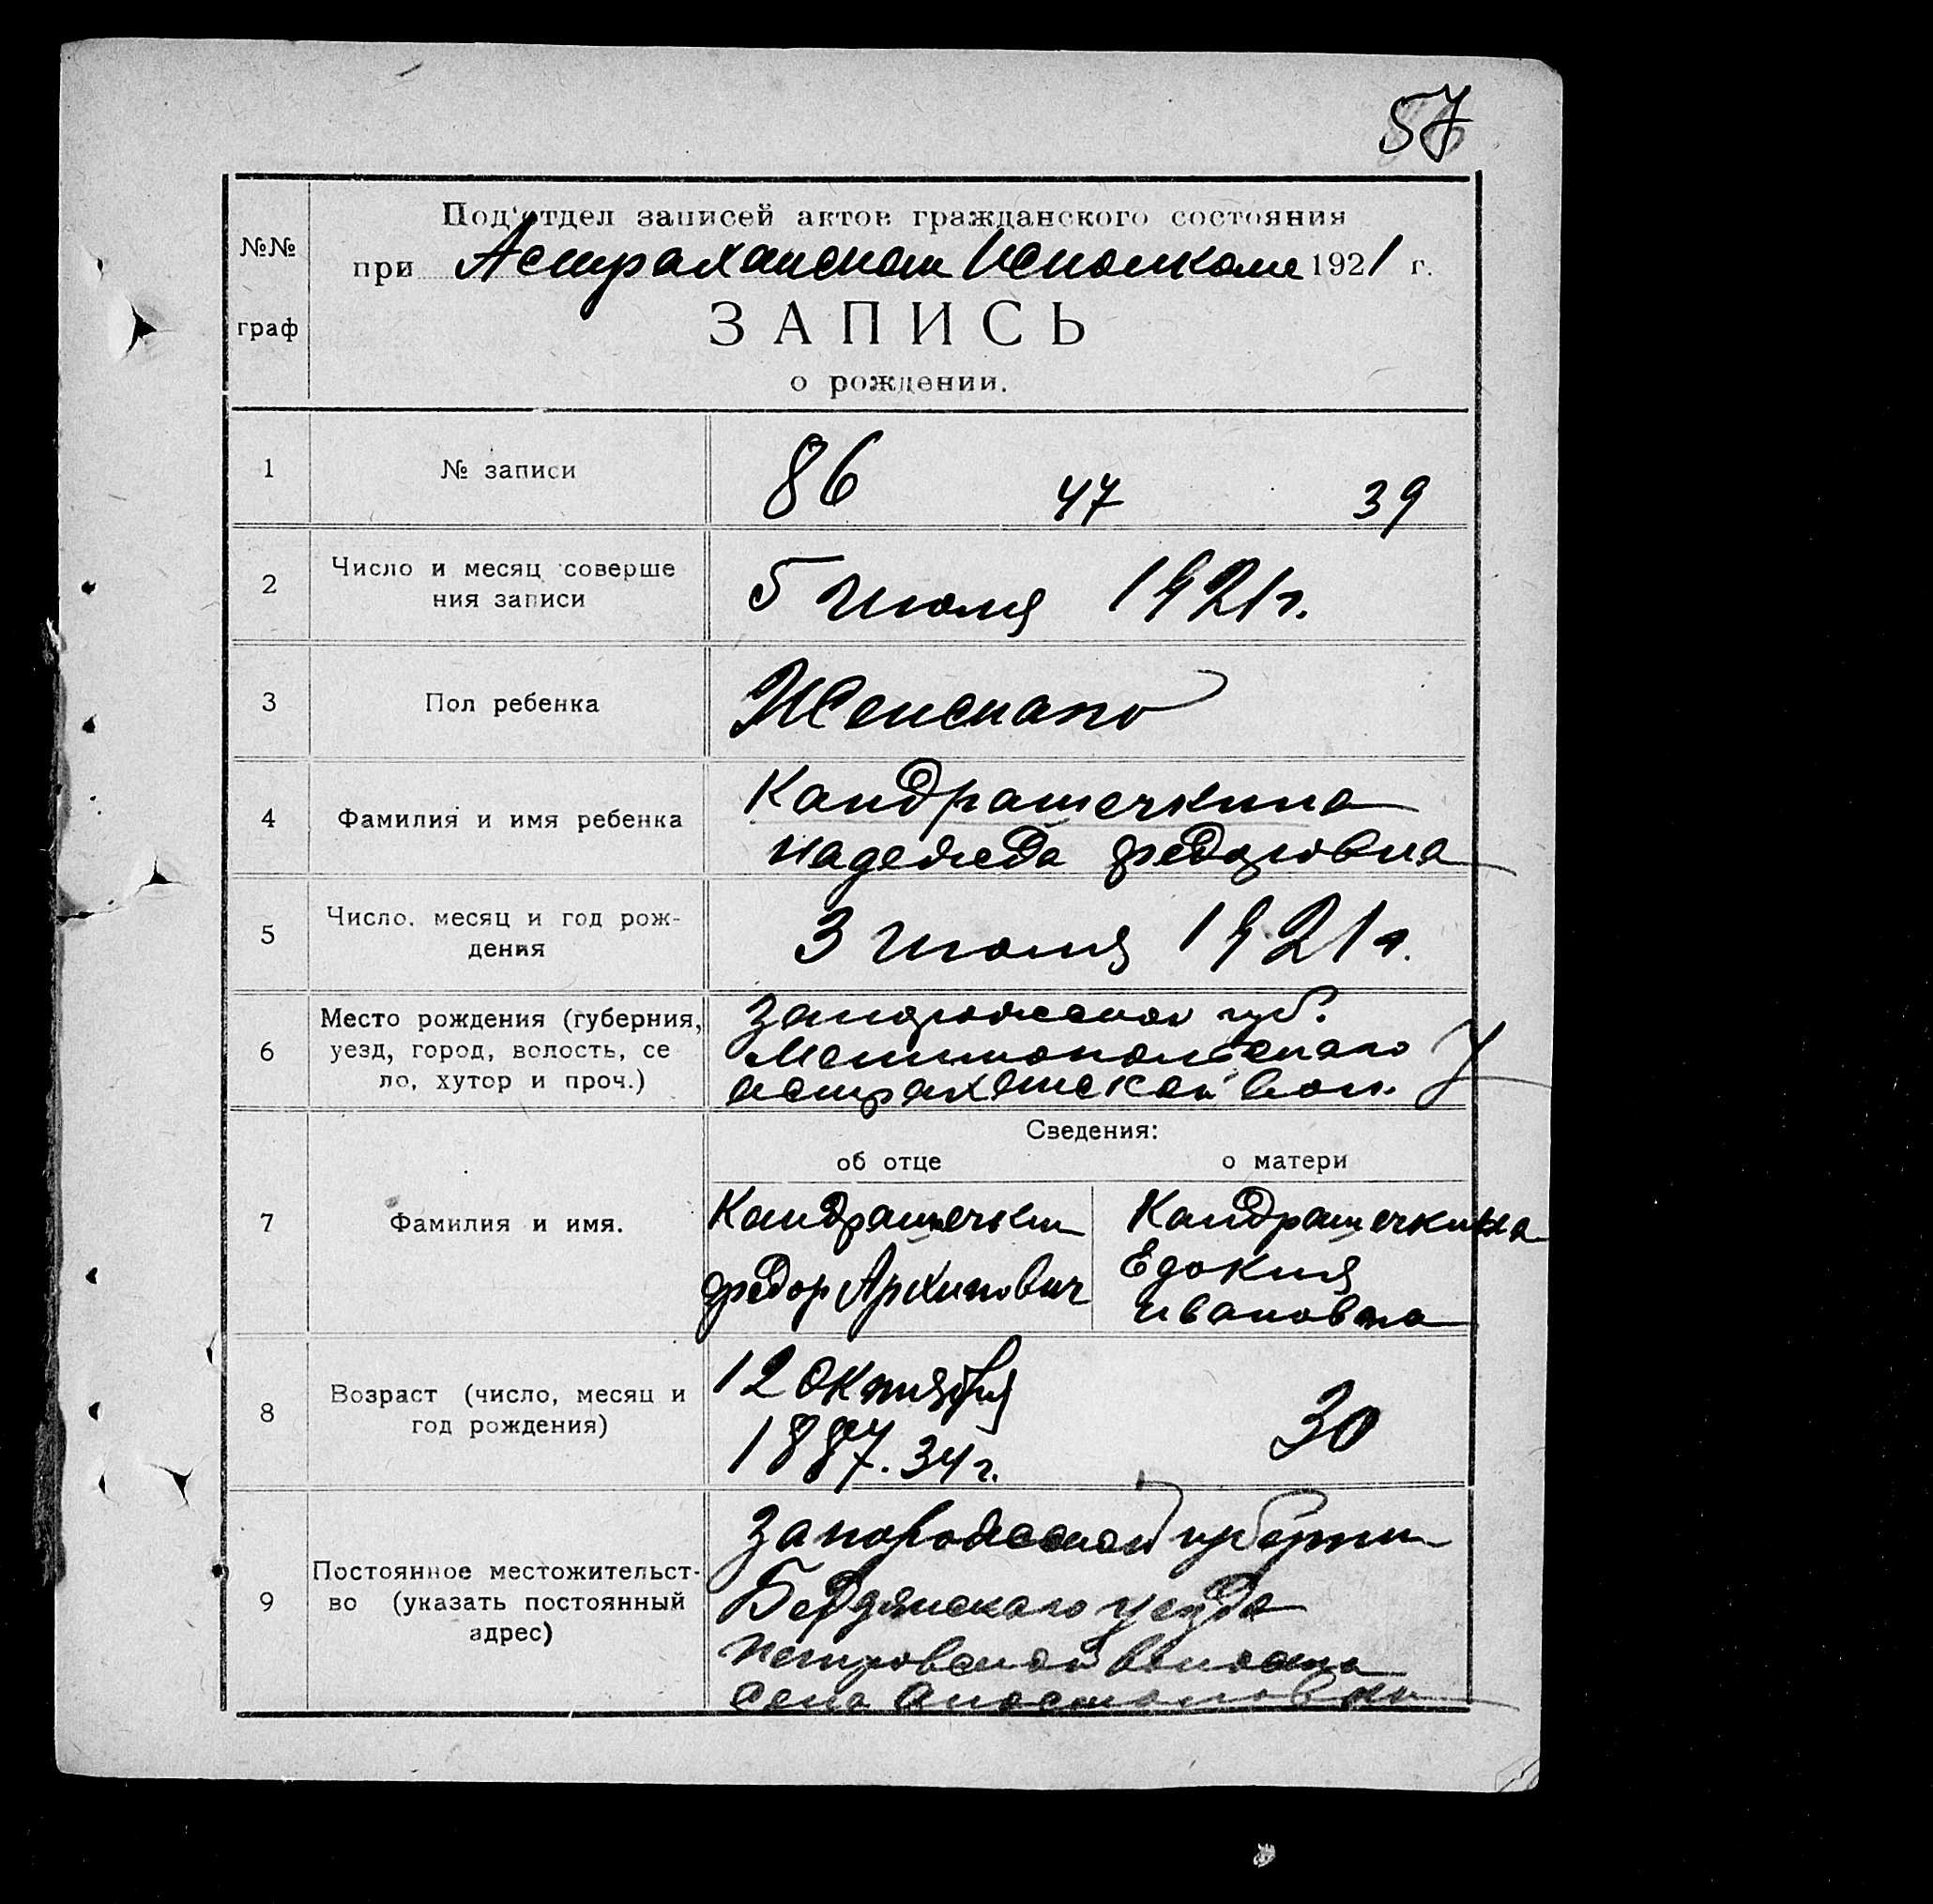 57
№№
граф
Под'отдел записей актов гражданского состояния
при Астраханском Исполкоме 1921 г.
ЗАПИСЬ
о рождении.
1 № записи 86 47 39
2 Число и месяц соверше
ния записи
5 июля 1921 г.
3 Пол ребенка Женскаго
4 Фамилия и имя ребенка
Кандрашечкина
надежда федоровна
5 Число, месяц и год рож-
дения
3 июля 1921 г.
6 Место рождения (губерния,
уезд, город, волость, се
ло, хутор и проч.)
Запорожской губ.
Мелитопольскаго У
астраханской вол.
Сведения:
об отце о матери
7 Фамилия и имя.
Кандрашечкин
федор Архипович
Кандрашечкина
Едокия
ивановна
8 Возраст (число, месяц и
год рождения)
12 октября
1887. 34 г.
30
9 Постоянное местожительст-
во (указать постоянный
адрес)
Запорожской губернии
Бердянскаго уезда
петровской волости
села апостоловки